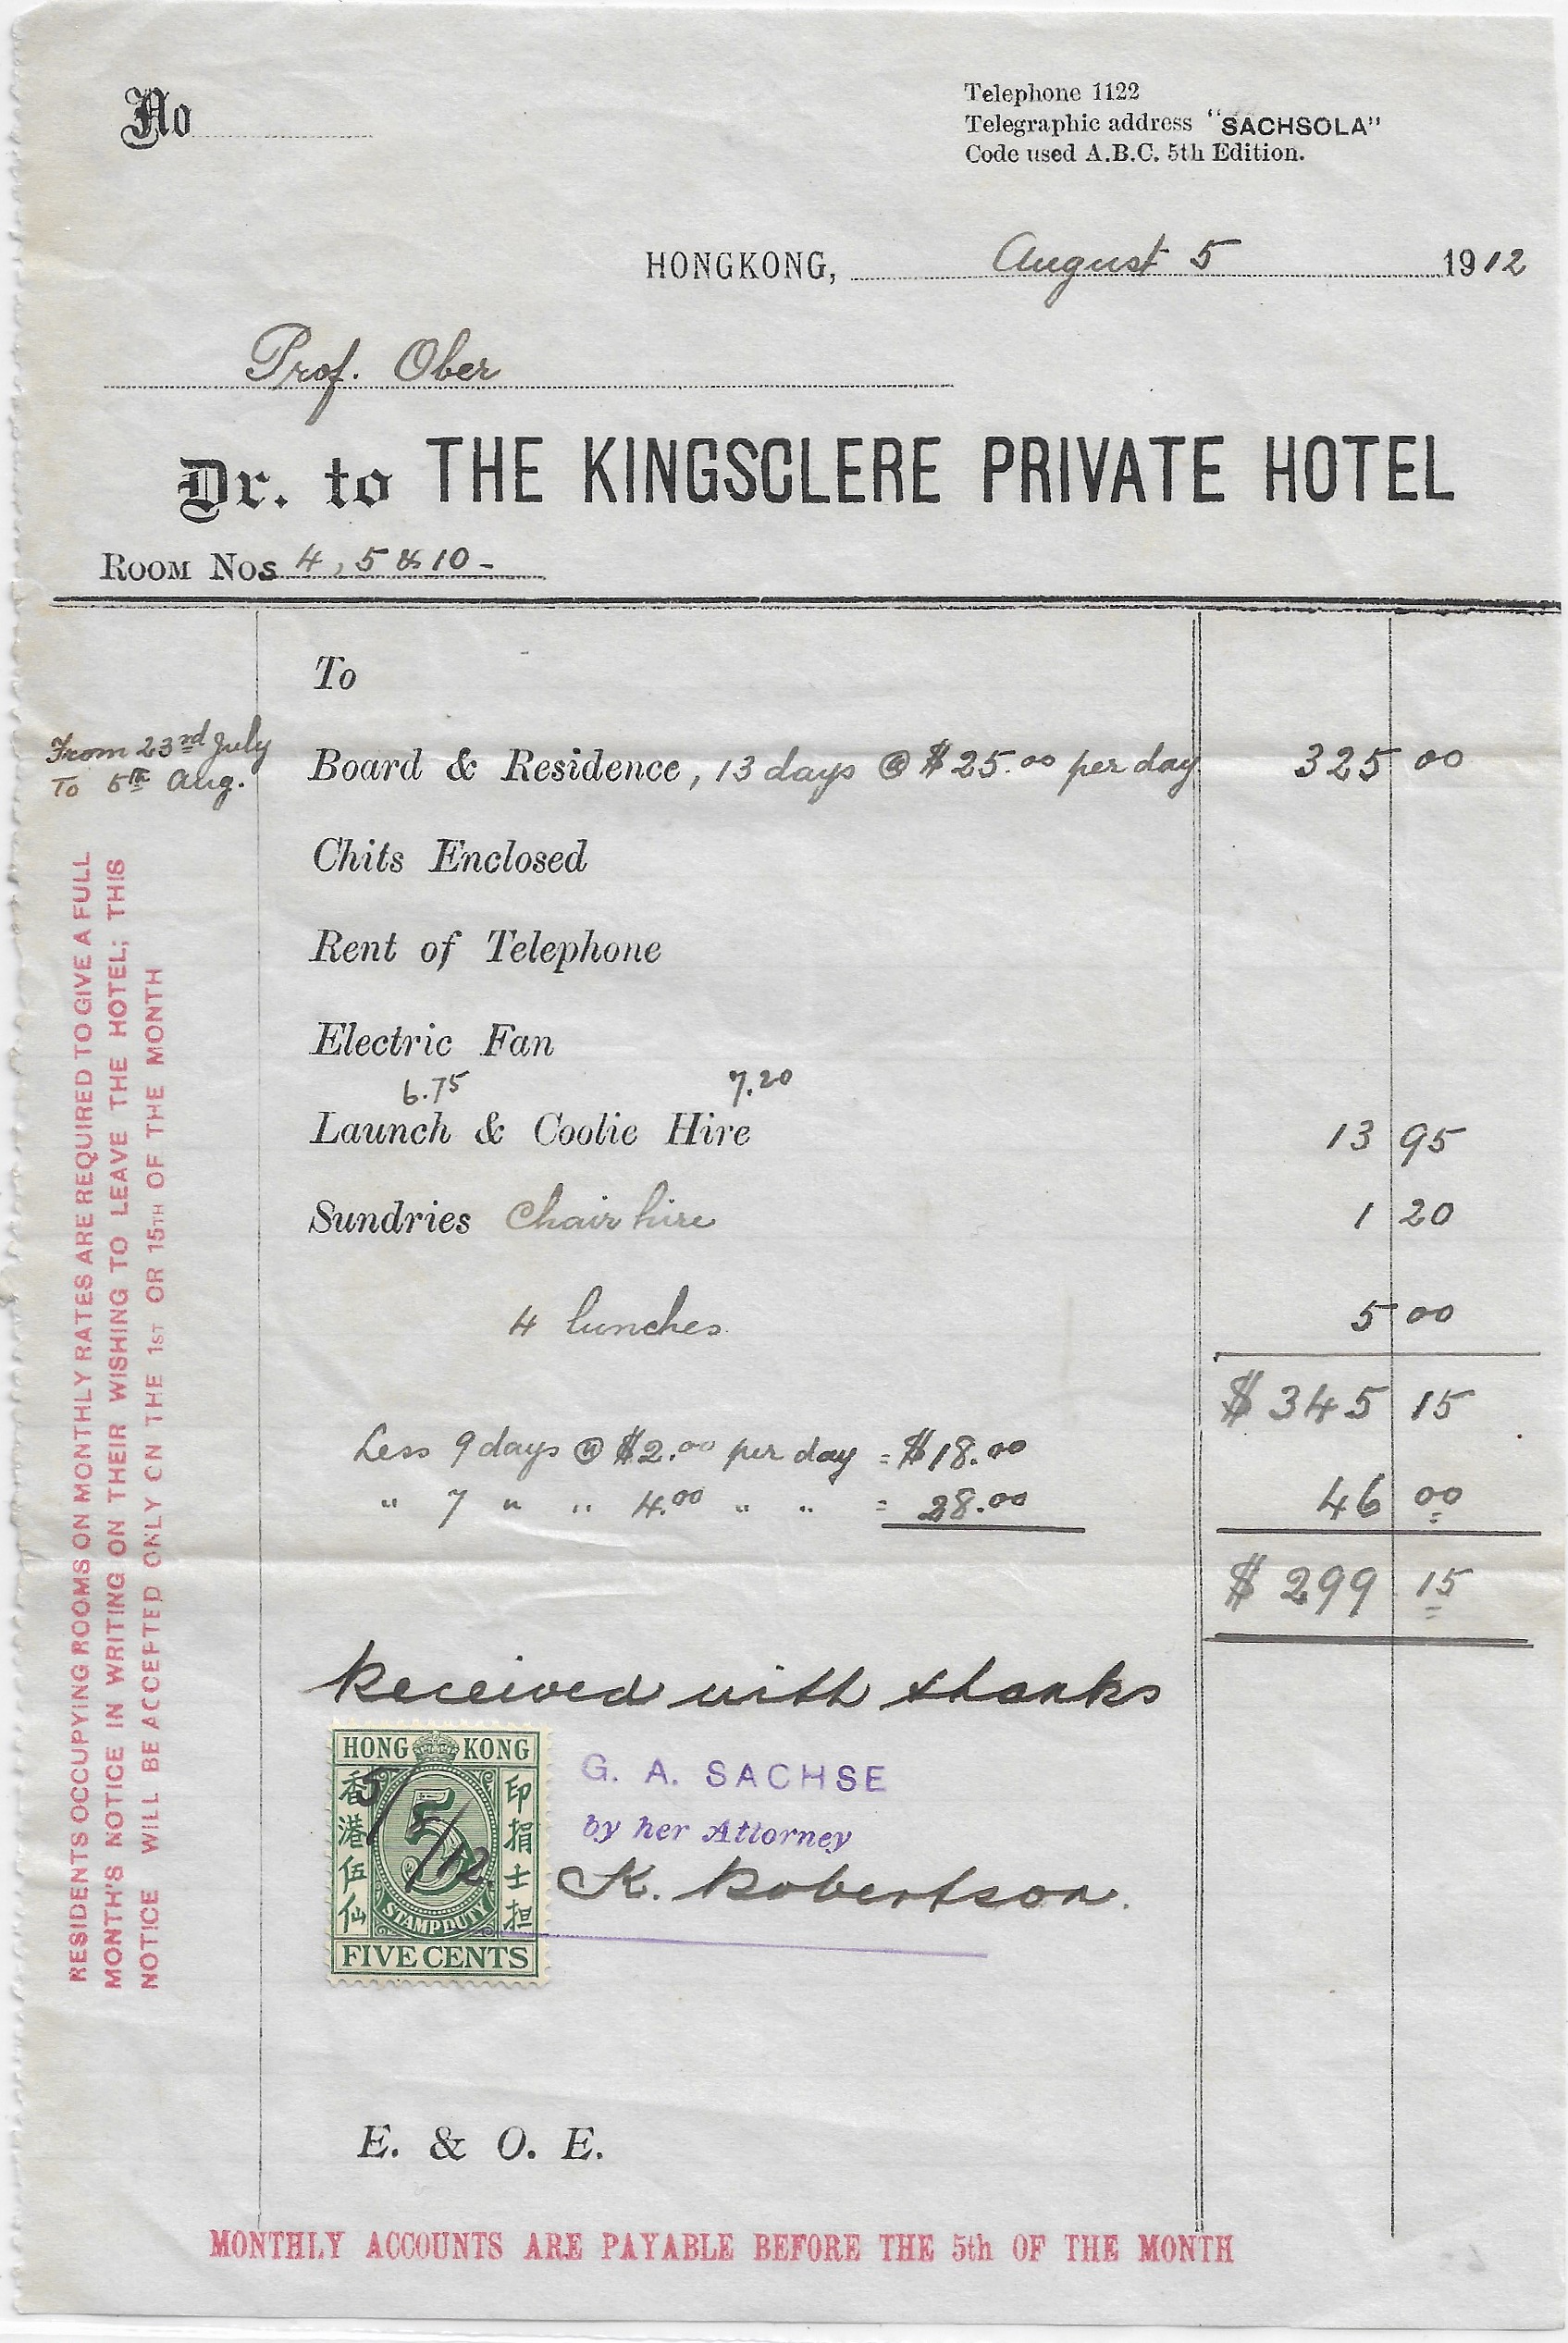 No
Telephone 1122
Telegraphic address "SACHSOLA"
Code used A.B.C. 5th Edition.
HONGKONG, August 5 1912
Prof. Ober
Dr. to THE KINGSCLERE PRIVATE HOTEL
ROOM Nos 4, 5 & 10-
To
From 23rd July
To 5th Aug.
Board & Residence, 13 days @ $25.00 per day 325 00
Chits Enclosed
Rent of Telephone
Electric Fan
6.75 7.20
Launch & Coolie Hire 13 95
Sundries Chair hire 1 20
4 lunches 5 00
$ 345 15
Less 9 days @ $2.00 per day = $18.00
" 7 " " 4.00 " " = 28.00 46 00
$ 299 15
Received with thanks
HONG KONG
香港伍仙
印捐士担
5
5/8/12
STAMP DUTY
FIVE CENTS
G. A. SACHSE
by her Attorney
K. Robertson.
E. & O. E.
RESIDENTS OCCUPYING ROOMS ON MONTHLY RATES ARE REQUIRED TO GIVE A FULL
MONTH'S NOTICE IN WRITING ON THEIR WISHING TO LEAVE THE HOTEL; THIS
NOTICE WILL BE ACCEPTED ONLY ON THE 1ST OR 15TH OF THE MONTH
MONTHLY ACCOUNTS ARE PAYABLE BEFORE THE 5th OF THE MONTH